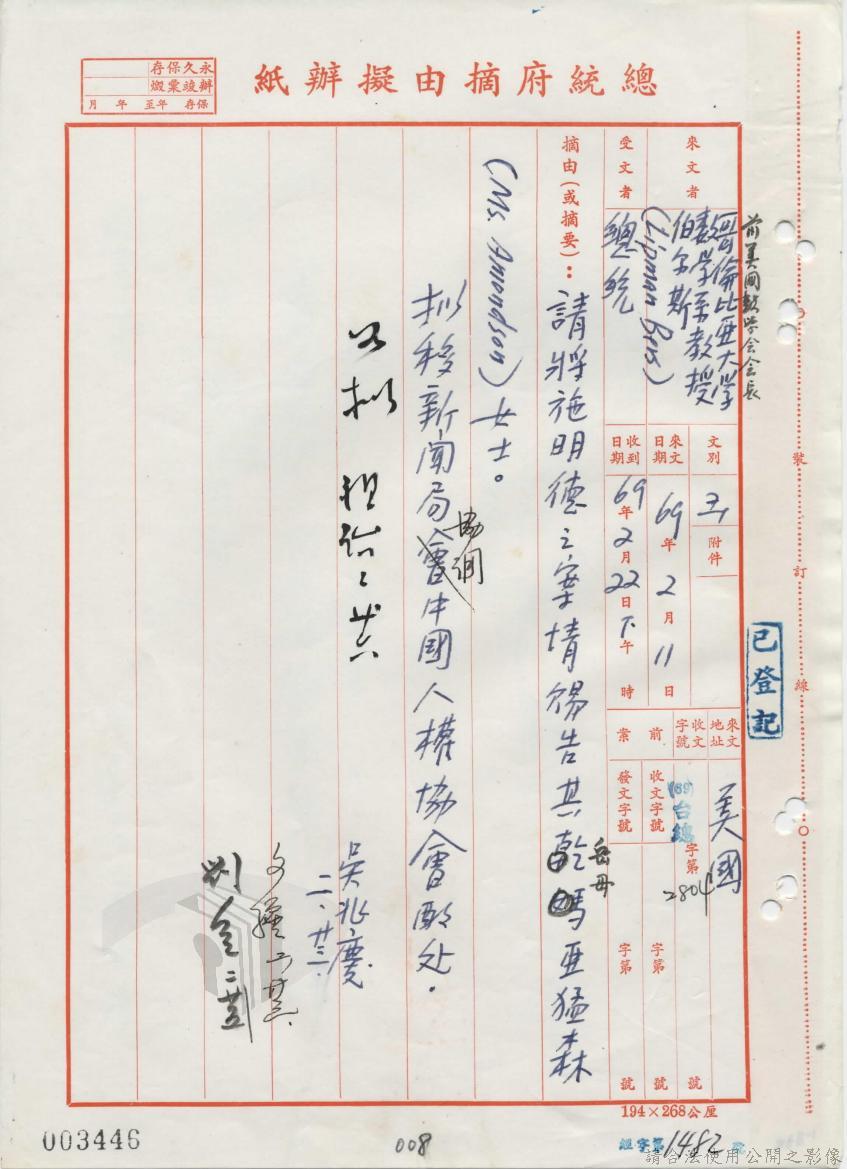 總統府摘由擬辦紙
永久保存
辦竣彙燬
保存 年至 年 月
前美國數學会会長
來文者
哥倫比亞大学
數学系教授
伯尔斯
(Lipman Bers)
受文者
總統
文別
附件
來文日期
69年2月11日
收到日期
69年2月22日下午 時
來文地址
美國
收文字號
(69)台總字第2804號
前案
收文字號
字第 號
發文字號
字第 號
摘由(或摘要):請將施明德之案情賜告其乾媽亚猛森
岳母
(Ms. Amondson)女士。
拟移新聞局會中國人權協會酌处.
協調
如拟
吳兆慶
二、廿三.
已登記
裝
訂
線
194×268公厘
003446
008
總字第1482號
請合法使用公開之影像